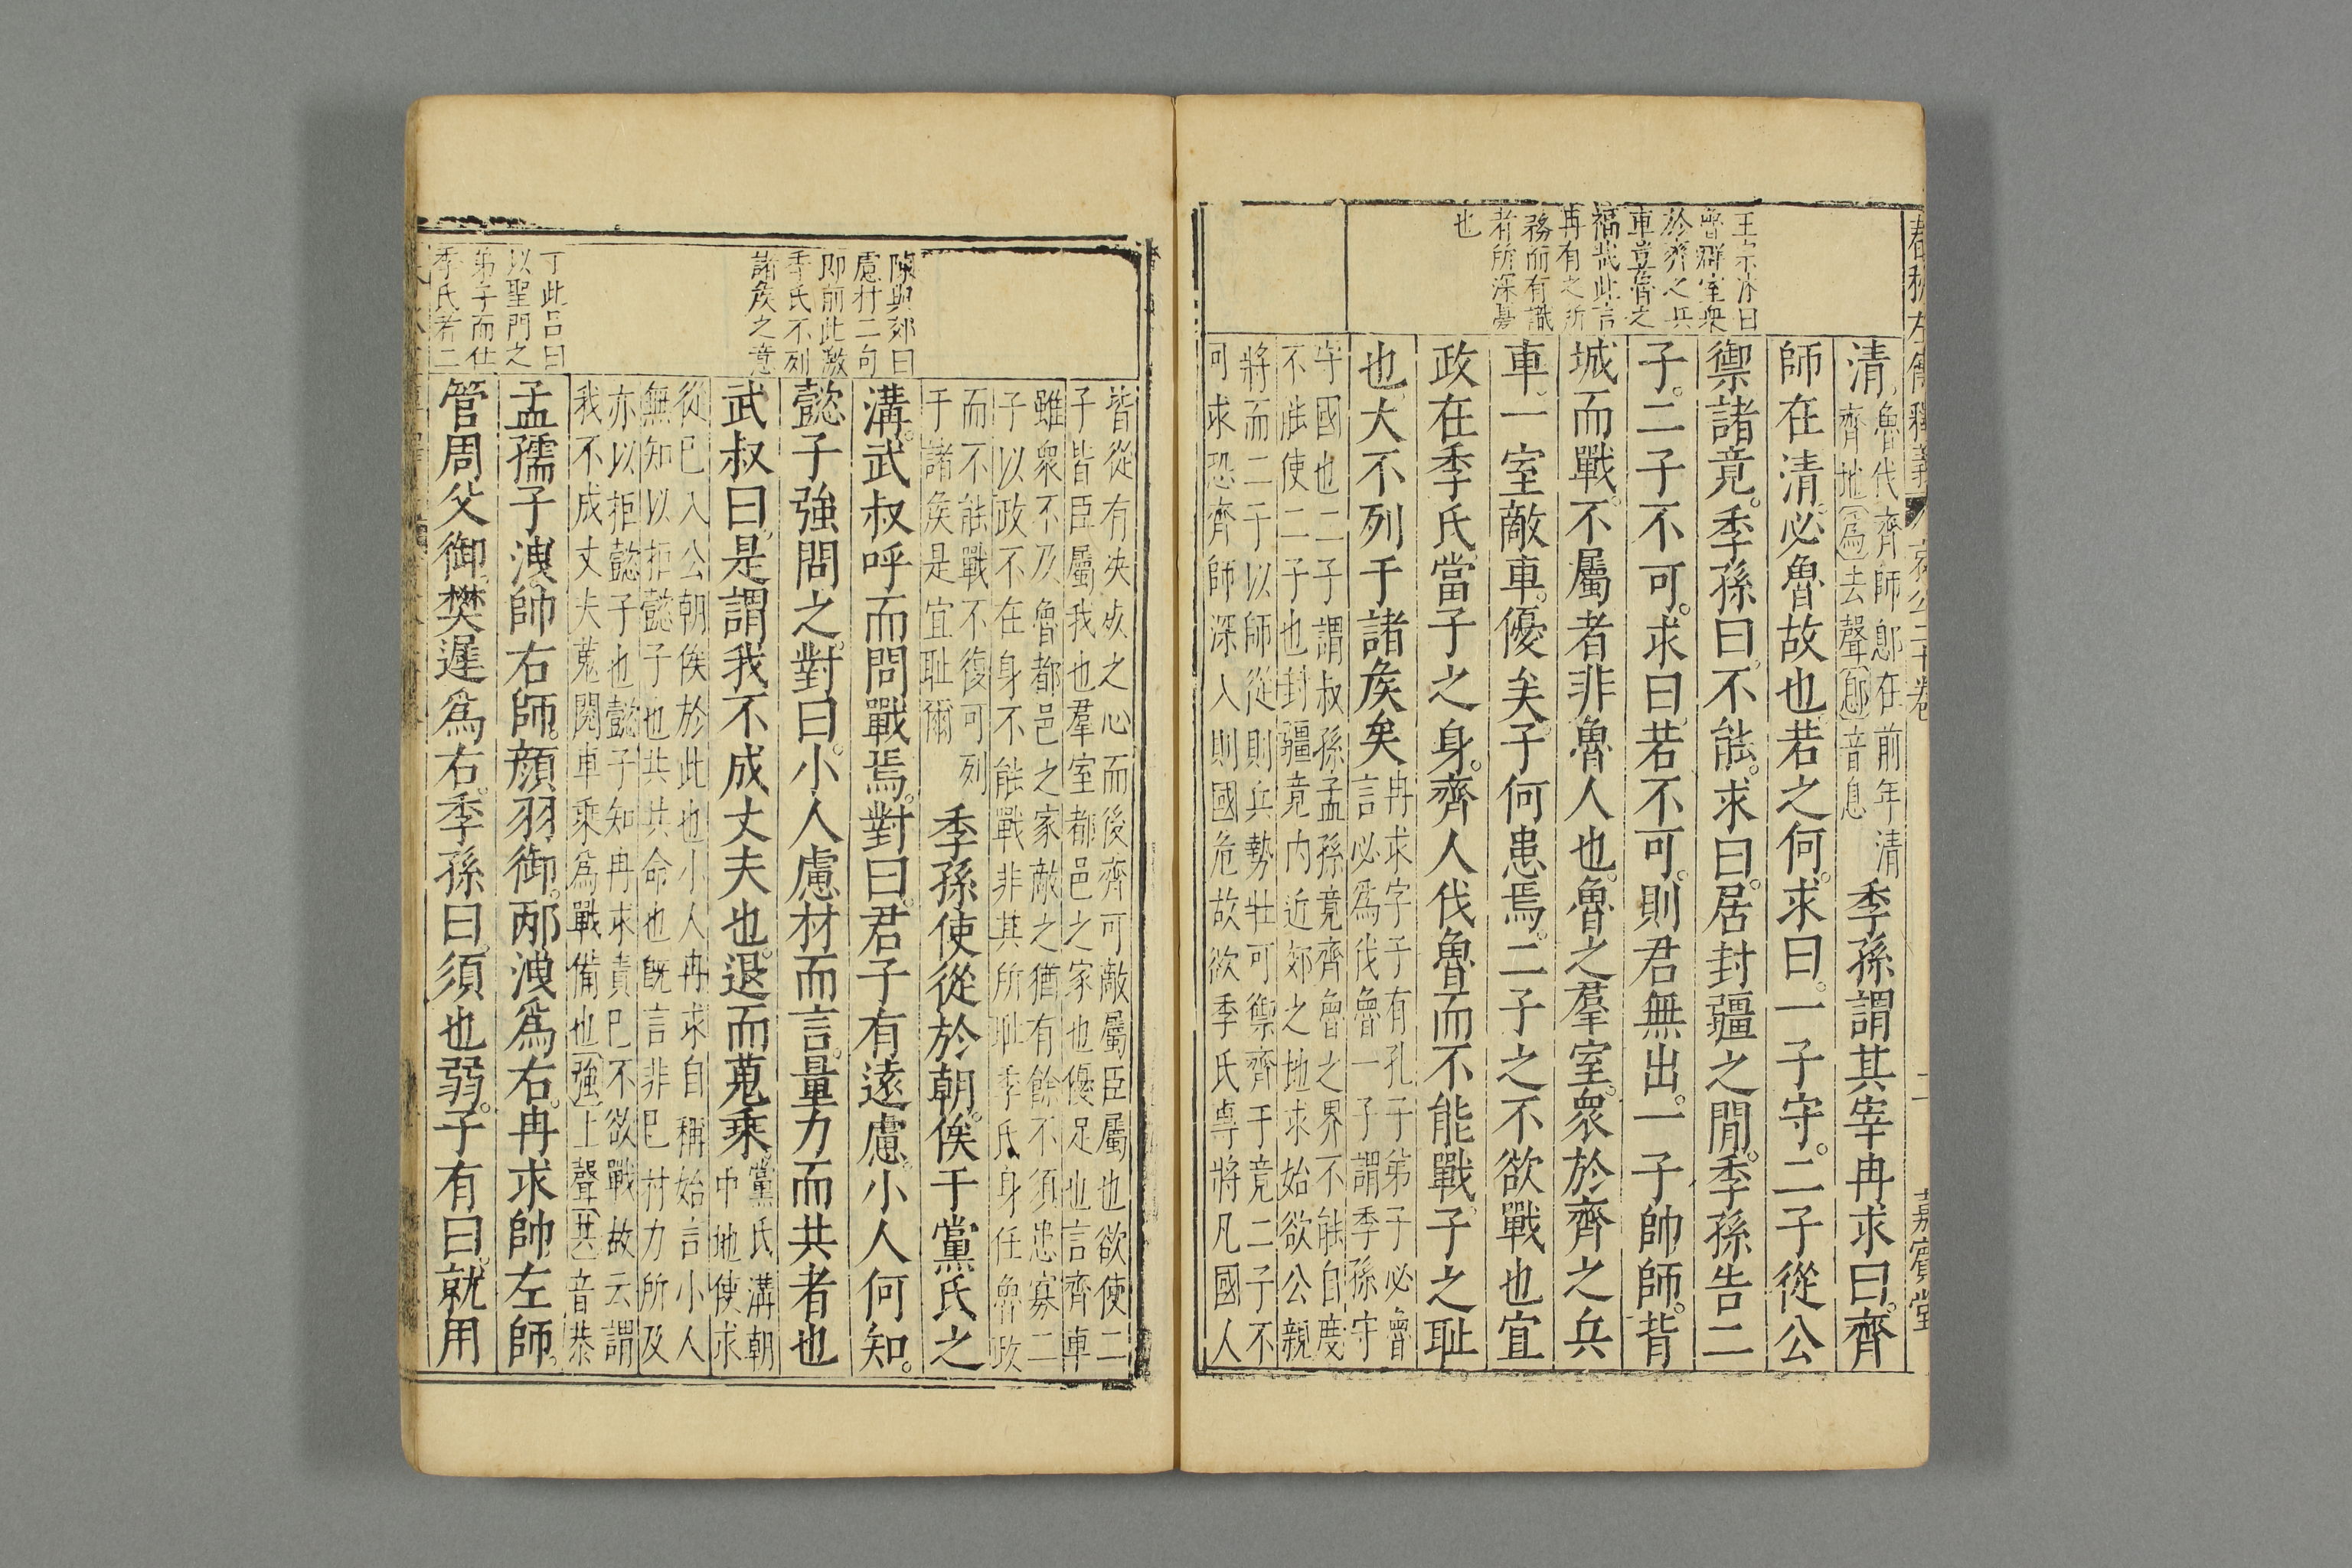 王宗沐曰
魯群室衆
於齊之兵
車豈魯之
福哉此言
冉有之所
務而有識
者所深憂
也
清
魯代齊師郎在前年清
齊地為去聲郎音息
季孫謂其宰冉求曰齊
師在清必魯故也若之何求曰一子守二子從公
禦諸竟季孫曰不能求曰居封疆之間季孫告二
子二子不可求曰若不可則君無出一子帥師背
城而戰不屬者非魯人也魯之羣室衆於齊之兵
車一室敵車優矣子何患焉二子之不欲戰也宜
政在季氏當子之身齊人伐魯而不能戰子之恥
也大不列于諸矦矣
冉求字子有孔子弟子必魯
言必為伐魯一子謂季孫守
守國也二子謂叔孫孟孫竟齊魯之界不能自度
不能使二子也封疆竟内近郊之地求始欲公親
將而二子以師從則兵勢壮可禦齊于竟二子不
可求恐齊師深入則國危故欲季氏專將凡國人
陳與郊曰
慮材二句
即前此激
季氏不列
諸矦之意
丁此呂曰
以聖門之
弟子而仕
季氏若二
皆從有決死之心而後齊可敵屬臣屬也欲使二
子皆臣屬我也羣室都邑之家也優足也言齊車
雖衆不及魯都邑之家敵之猶有餘不須患寡二
子以政不在身不能戰非其所恥季氏身任魯政
而不能戰不復可列
于諸矦是宜恥爾
季孫使從於朝俟于黨氏之
溝武叔呼而問戰焉對曰君子有遠慮小人何知
懿子強問之對曰小人慮材而言量力而共者也
武叔曰是謂我不成丈夫也退而蒐乘
黨氏溝朝
中地使求
從已入公朝俟於此也小人冉求自稱始言小人
無知以拒懿子也共共命也既言非已材力所及
亦以拒懿子也懿子知冉求責已不欲戰故云謂
我不成丈夫蒐閱車乘為戰備也強上聲共音恭
孟孺子洩帥右師顏羽御邴洩為右冉求帥左師
管周父御樊遲為右季孫曰須也弱子有曰就用